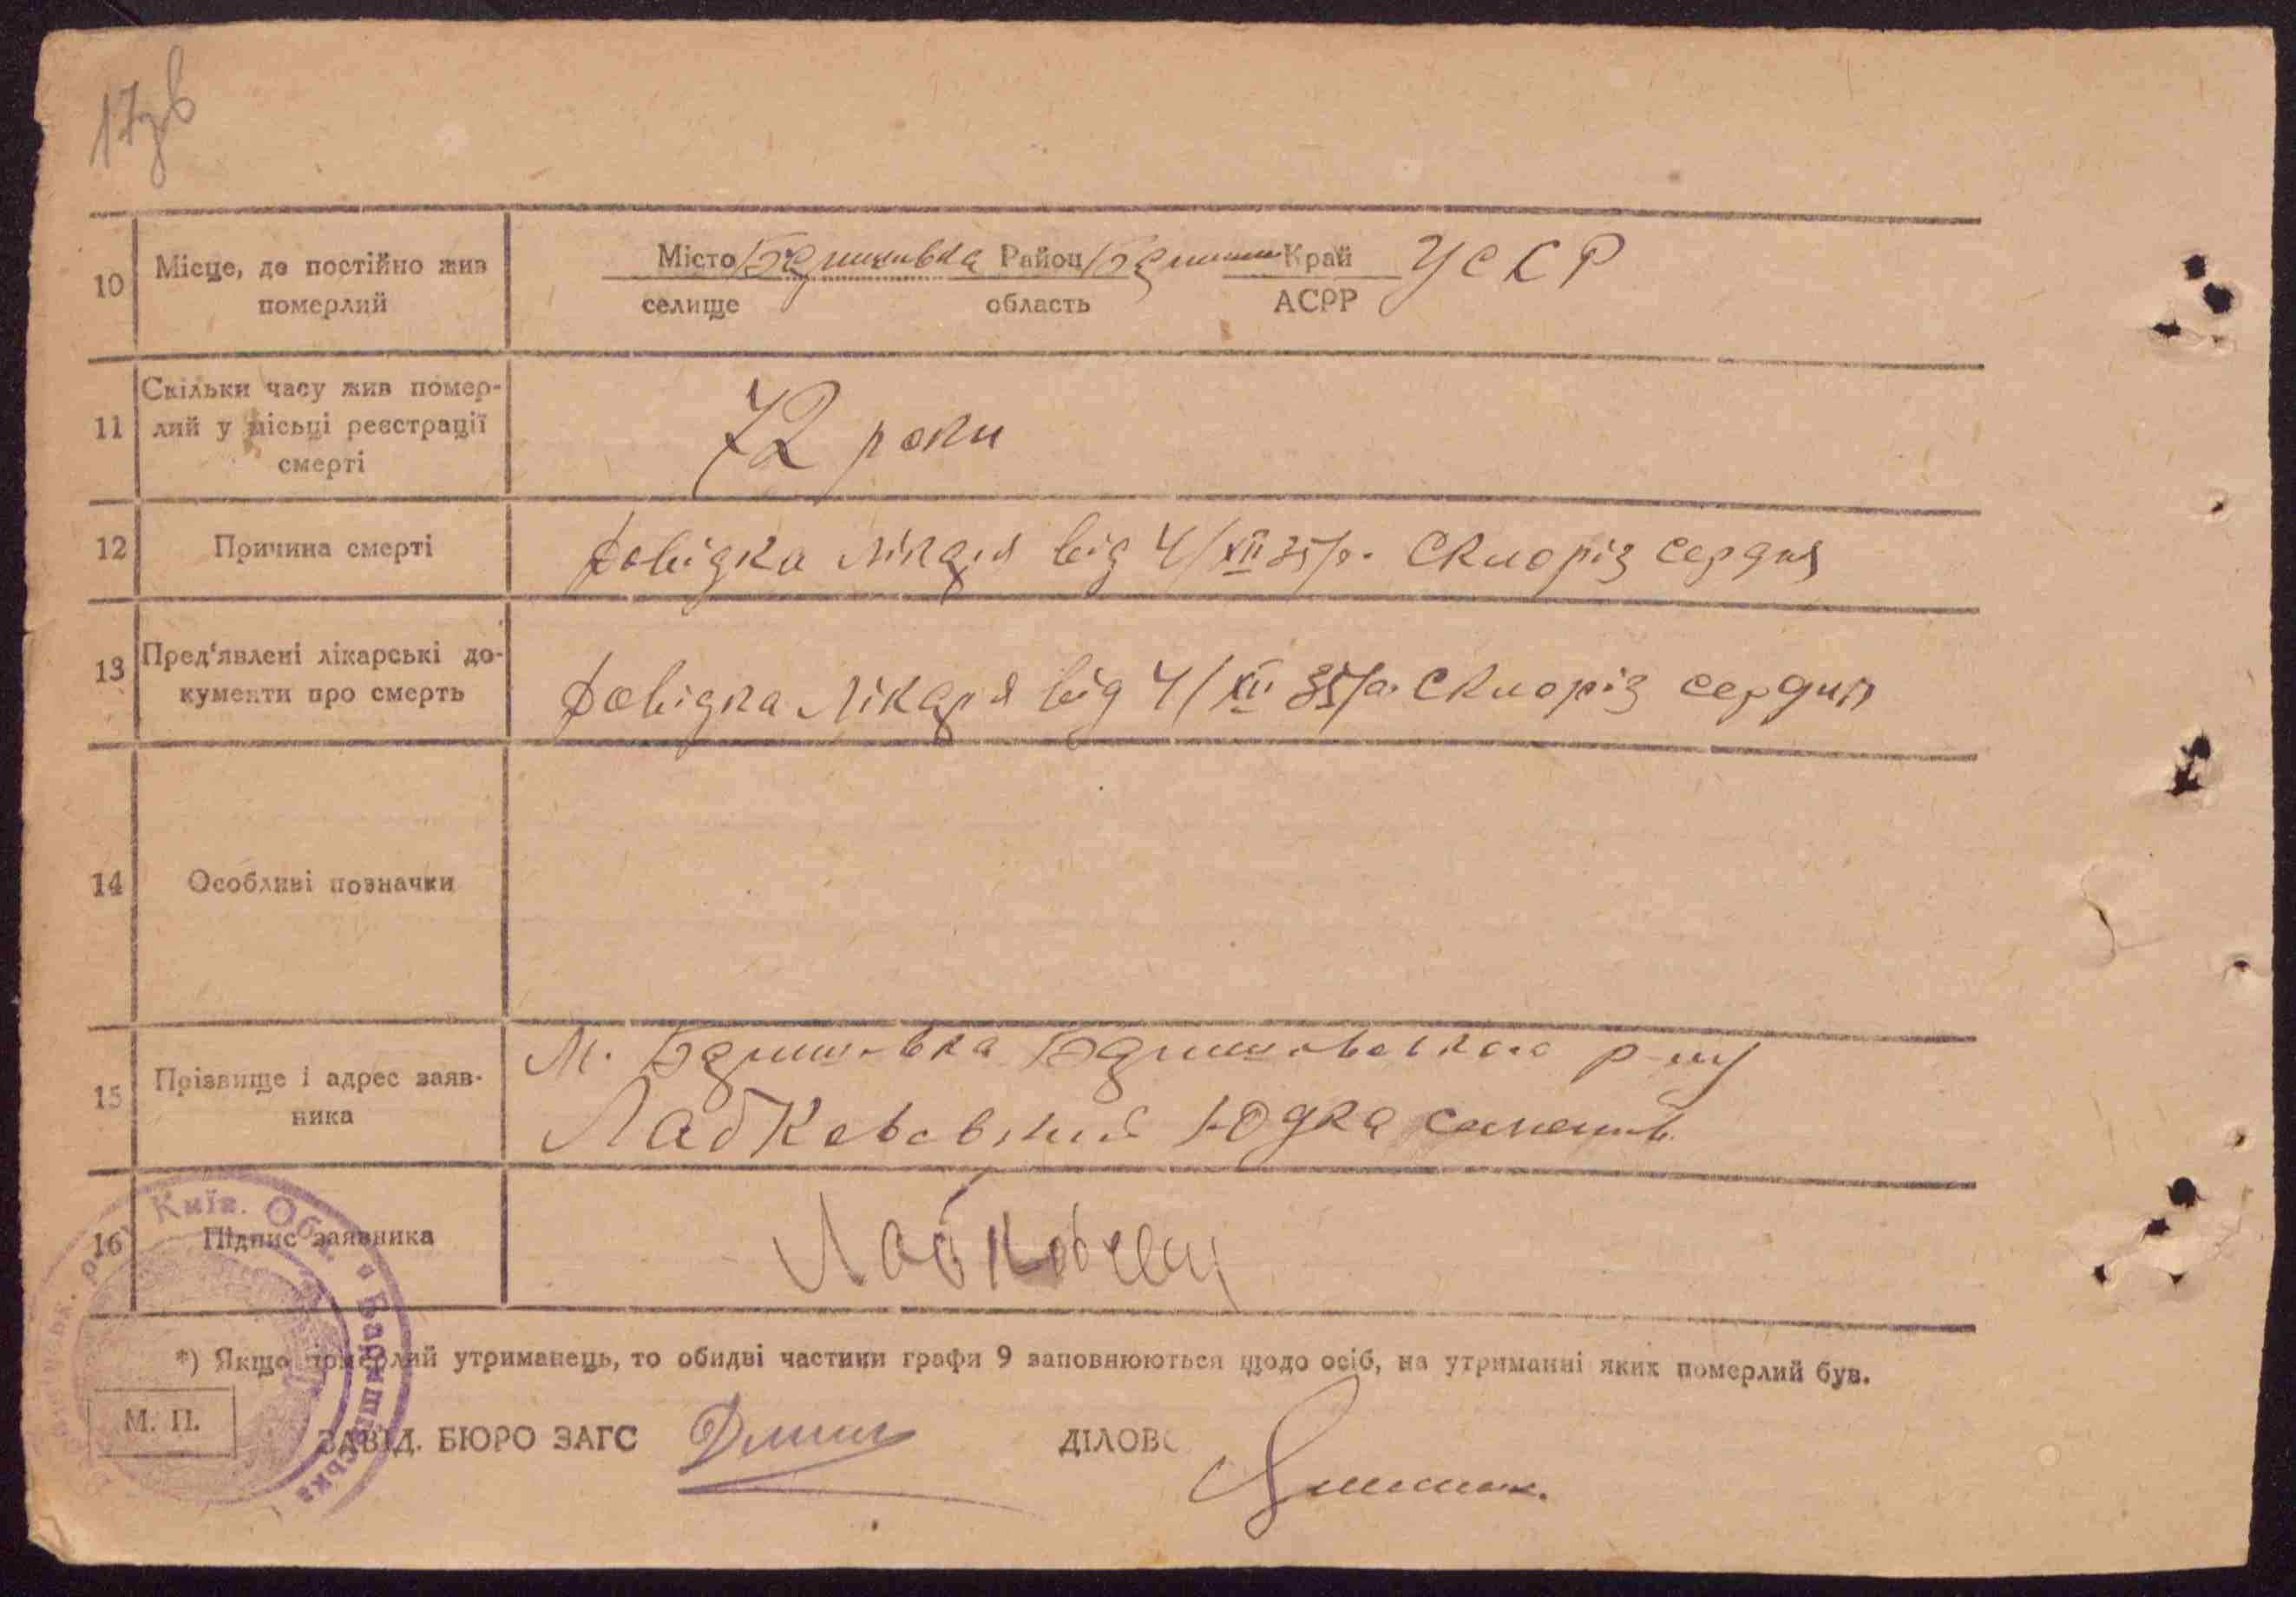 17зв
10 Місце, де постійно жив померлий
Місто Баришивка Район Бариш Край УСРР
селище область АСРР
11 Скільки часу жив помер-
лий у місьці реєстрації
смерті
72 роки
12 Причина смерті
довідка лікаря від 4/XII 35/р. Склоріз сердця
13 Пред'явлені лікарські до-
кументи про смерть
довідка лікаря від 4/XII 35/р. Склоріз сердця
14 Особливі позначки
15 Прізвище і адрес заяв-
ника
М. Баришовка Баришовського р-ну
Лабковський Юдка
16 Підпис заявника
*) Якщо померлий утриманець, то обидві частини графи 9 заповнюються щодо осіб, на утриманні яких померлий був.
М. П.
ЗАВІД. БЮРО ЗАГС ДІЛОВ
Київ. Обл. Баришівська